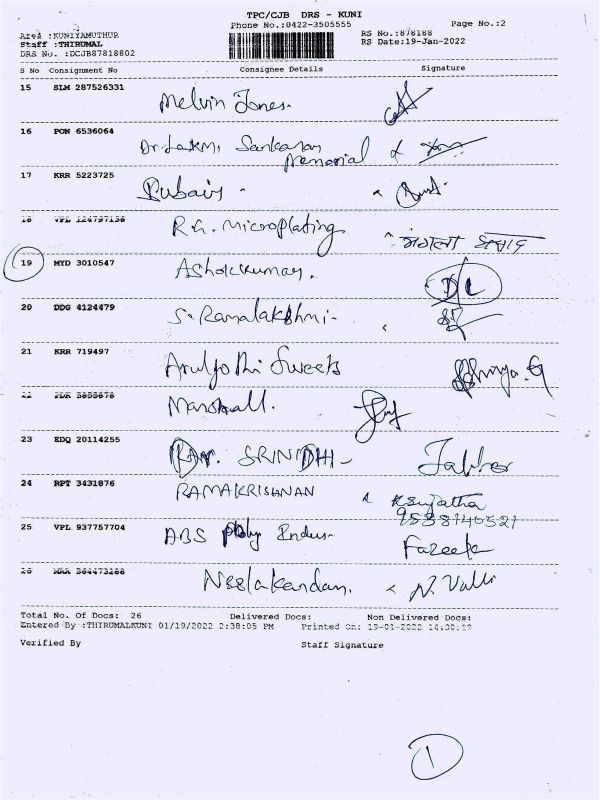 TPC/CJB DRS - KUNI
Phone No.:0422-3505555
Page No.:2
Area :KUNIYAMUTHUR
Staff :THIRUMAL
DRS No. :DCJB87818802
RS No.:878188
RS Date:19-Jan-2022
S No Consignment No Consignee Details Signature
15 SLM 287526331 Melvin Jones.
16 PON 6536064 Dr. Laxmi Sankaran
Memorial
17 KRR 5223725 Subair
18 VPL 124797136 R.G. Microplating
19 MYD 3010547 Ashokkumar.
DL
20 DDG 4124479 S. Ramalakshmi
21 KRR 719497 Aruljothi Sweets
22 Marshall.
23 EDQ 20114255 SRINIDHI
24 RPT 3431876 RAMAKRISHNAN K Sujatha
25 VPL 937757704 ABS Poly Indus. Fazeela
26 Neelakandan. N. Valli
Total No. Of Docs: 26 Delivered Docs: Non Delivered Docs:
Entered By :THIRUMALKUNI 01/19/2022 2:38:05 PM Printed On: 19-01-2022 14:30:19
Verified By Staff Signature
1